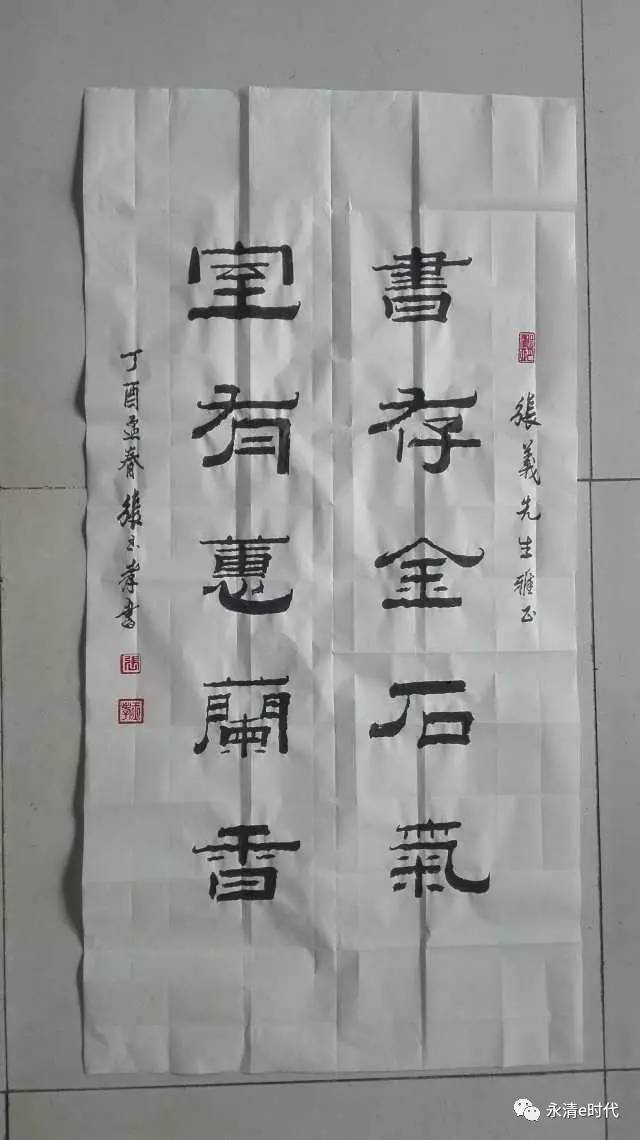 張義先生雅正
書存金石氣
室有蕙蘭香
丁酉孟春張玉孝書
永清e时代